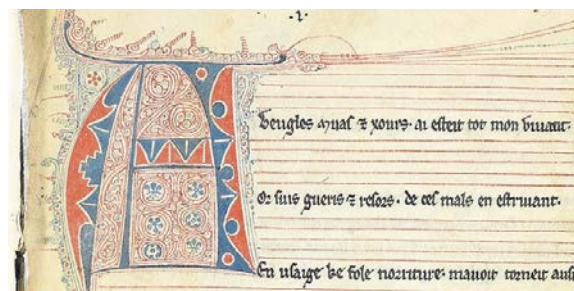 Aveugles muas ⁊ xours· ai esteit tot mon viuant·
Or suis gueris ⁊ resors· de ces mals en estruiant·
En usaige ke fole norriture· mauoit torneit